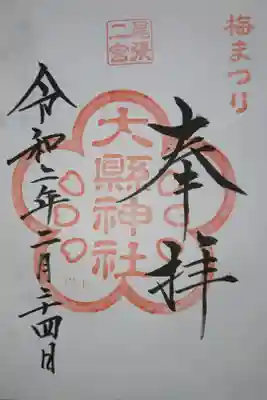 梅まつり
尾張
二宮
奉拝
大縣神社
令和二年二月二十四日